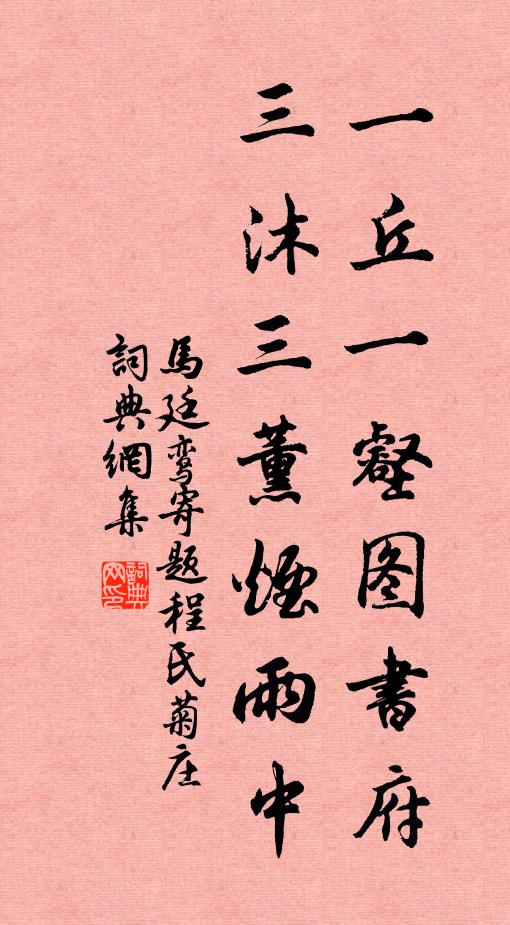 一丘一壑图書府
三沐三薰煙雨中
馬廷鸾寄题程氏菊庄
詞典網集
詞典网印